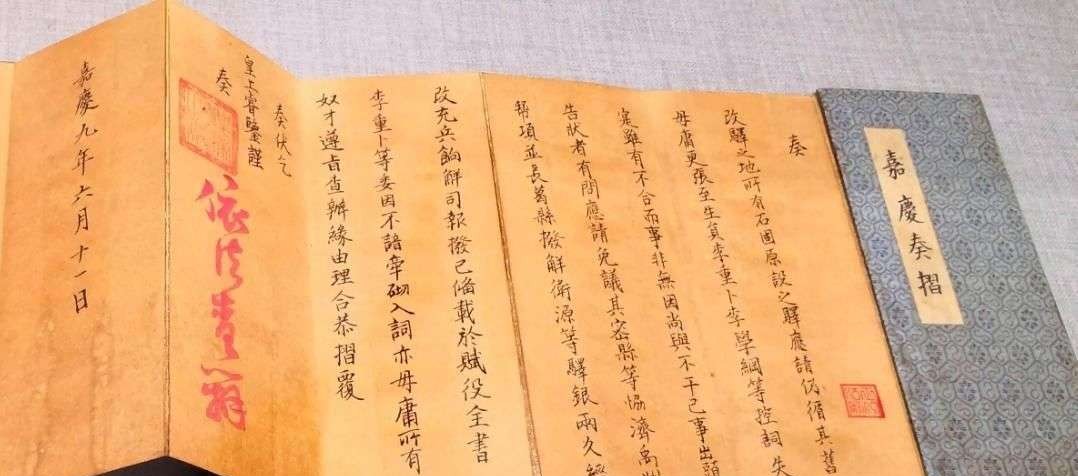 嘉慶奏摺
奏
改驛之地所有石固原設之驛應請仍循其舊
毋庸更張至生員李重卜李學綱等控詞失
寔雖有不合而事非無因尚與不干己事出頭
告狀者有間應請免議其密縣等協濟禹州
幇項並長葛縣撥解衛源等驛銀兩久經
改充兵餉解司報撥已俻載於賦役全書
李重卜等委因不諳牽砌入詞亦毋庸所有
奴才遵旨查辦緣由理合恭摺覆
奏伏乞
皇上睿鑒謹
奏
依法查辦
嘉慶九年六月十一日